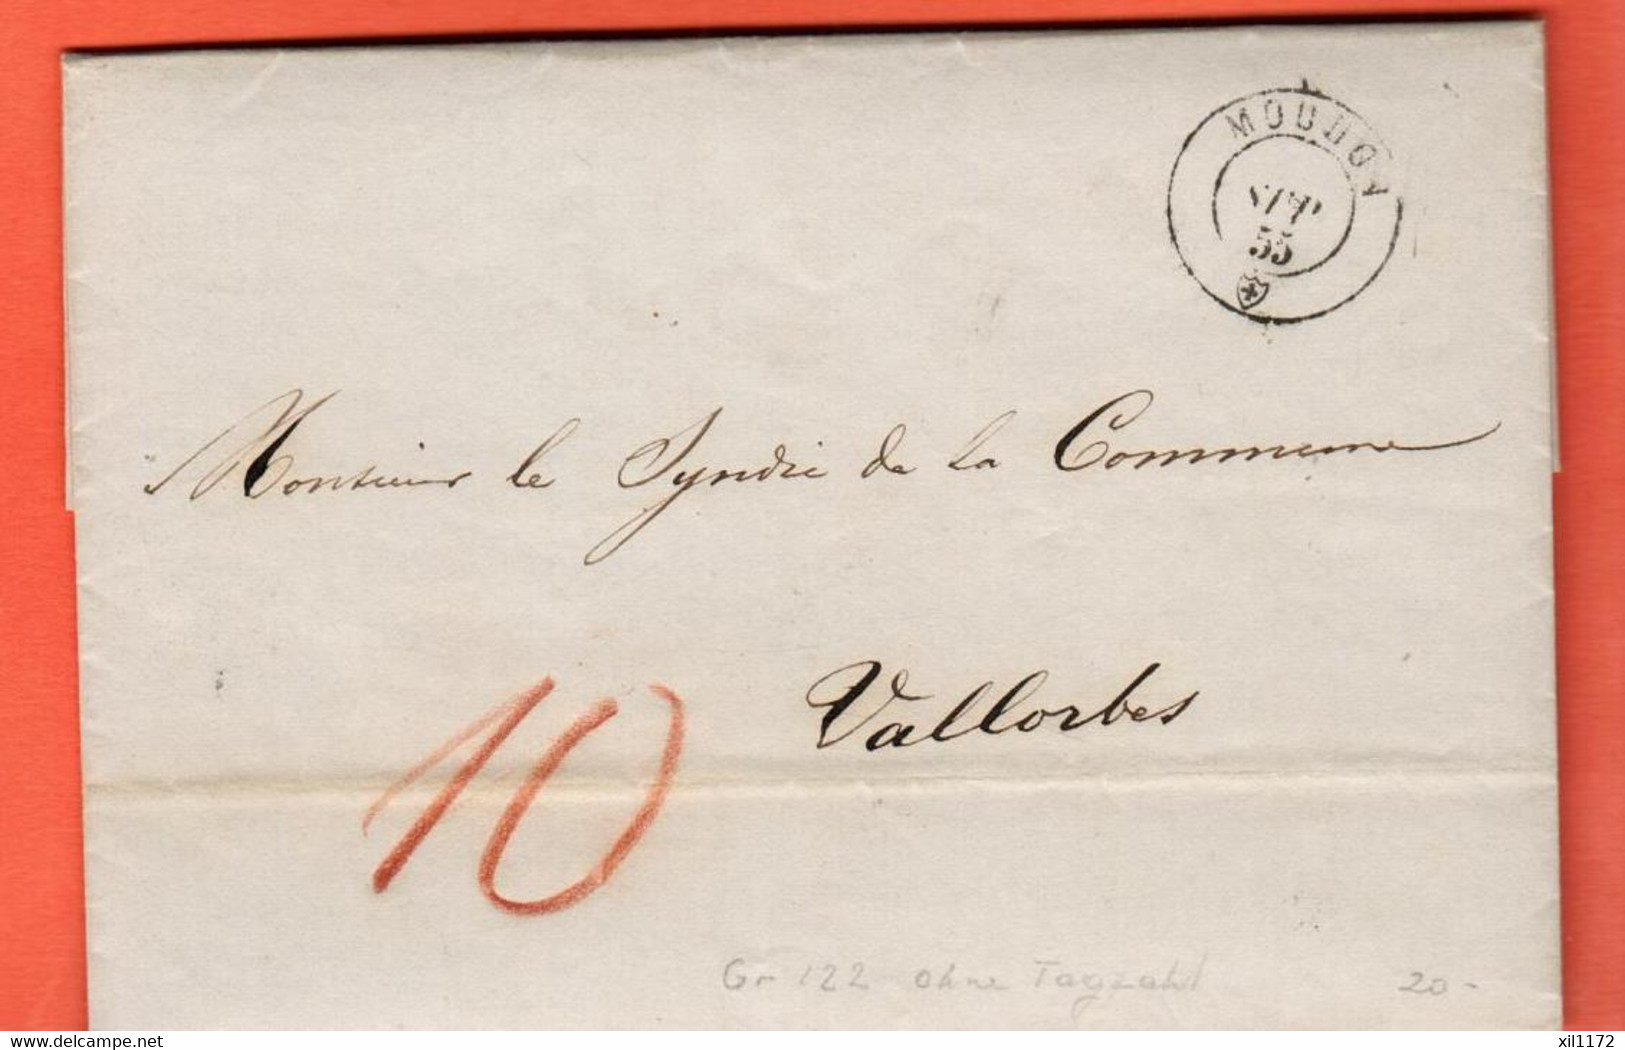 MOUDON
SEPT
55
Monsieur le Syndic de la Commune
Vallorbes
10
Gr 122 ohne Tagzahl
20.-
www.delcampe.net
xil1172